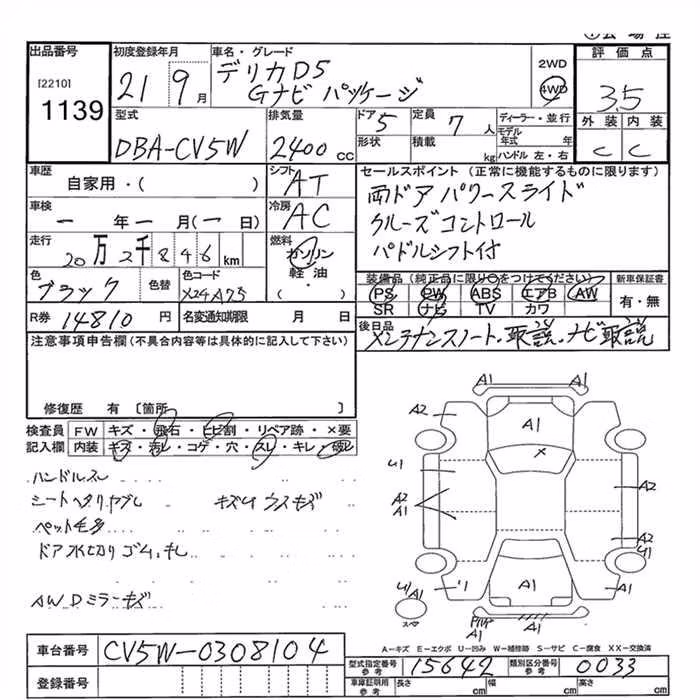 出品番号
[2210]
1139
初度登録年月
21 9月
車名・グレード
デリカD5
Gナビ パッケージ
2WD
4WD
評価点
3.5
外装 内装
C C
型式
DBA-CV5W
排気量
2400 cc
ドア 5
定員 7人
形状
積載 kg
ディーラー・並行
モデル年式 年
ハンドル 左・右
車歴
自家用・( )
シフト
AT
車検
一年一月(一日)
冷房
AC
走行
20万2千846km
燃料
ガソリン
軽油
・
( )
セールスポイント (正常に機能するものに限ります)
両ドアパワースライド
クルーズコントロール
パドルシフト付
色
ブラック
色替
色コード
X24A75
装備品(純正品に限り○をつけてください)
PS PW ABS エアB AW
SR ナビ TV カワ
新車保証書
有・無
R券 14810円
名変通知期限 月 日
後日品
メンテナンスノート・取説・ナビ取説
注意事項申告欄(不具合内容等は具体的に記入して下さい)
修復歴 有 〔箇所 〕
検査員記入欄
FW キズ・飛石・ヒビ割・リペア跡・×要
内装 キズ・汚レ・コゲ・穴・スレ・キレ・破レ
ハンドルスレ
シートヘタリヤブレ キズUウスキズ
ペット毛多
ドア水切りゴムキレ
AWDミラーキズ
A1
A2
A1
X
U1
A2
A1
A2
A2
U1
U1
A1
'1
A1
A1
A1
A1
スペヤ
A―キズ E―エクボ U―凹み W―補修跡 S―サビ C―腐食 XX―交換済
車台番号
CV5W-0308104
登録番号
型式指定番号
参考
15642
類別区分番号
参考
0033
車庫証明用
参考
長さ cm
幅 cm
高さ cm